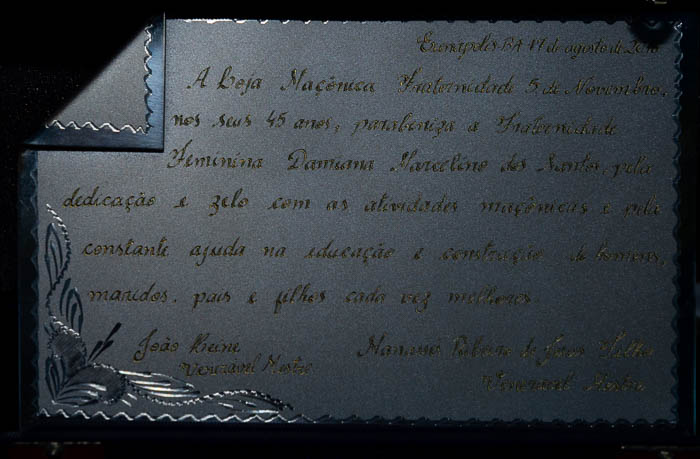 Eunápolis-BA 17 de agosto de
A Loja Maçônica Fraternidade 5 de Novembro,
nos seus 45 anos, parabeniza a Fraternidade
Feminina Damiana Marcelino dos Santos, pela
dedicação e zelo com as atividades maçônicas e pela
constante ajuda na educação e construção de homens,
maridos, pais e filhos cada vez melhores.
João Manassés Ribeiro de
Venerável Mestre Venerável Mestre